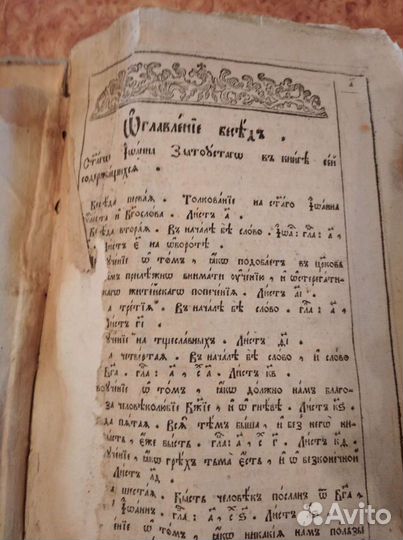 Ѡглавленїе бесѣдъ .
Ст҃агѡ Іѡанна Златоустагѡ въ книгѣ сей
содержащихсѧ .
Бесѣда первая . Толкованїе на ст҃аго Іѡанна
и Бг҃ослова . Листъ а҃ .
Бесѣда вторая . Въ началѣ бѣ слово . Іѡа҃ : гла҃ : а҃ ,
Листъ є҃ на ѡборотѣ .
ѹченїе ѡ томъ , ꙗкѡ подобаетъ въ церкова
прилѣжнѡ внимати ѹченїю , и ѿстрегати
житейскагѡ попеченїя . Листъ аі҃ .
а третїя . Въ началѣ бѣ слово . гла҃ : а҃ ,
Листъ гі҃ .
ѹченїе на тщеславныхъ . Листъ
а четвертая . Въ началѣ бѣ слово , и слово
Бг҃а . гла҃ : а҃ , с҃ а҃ . Листъ к҃в .
воученїе ѡ томъ , ꙗкѡ должно намъ благо
за человѣколюбїе Бж҃їе , и ѡ гнѣвѣ . Листъ к҃ѕ .
да пятая . Вся тѣмъ быша , и без негѡ ни
, еже бысть . гла҃ : а҃ , с҃ г҃ . Листъ к҃д .
ѹченїе , ꙗкѡ грѣхъ тьма есть , и ѡ безконечной
Листъ
а шестая . Бысть человѣкъ посланъ ѿ Бг҃а ,
Іѡаннъ . гла҃ : а҃ , с҃ ѕ҃ . Листъ
енїе ѡ томъ , ꙗкѡ никакїя намъ пользы
Avito